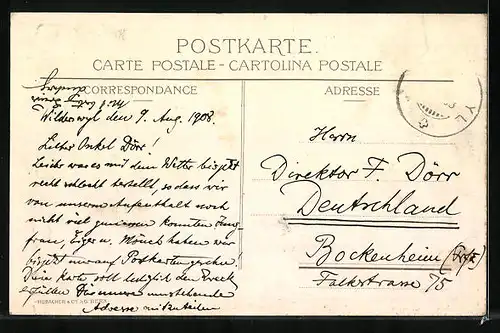 POSTKARTE.
CARTE POSTALE - CARTOLINA POSTALE
CORRESPONDANCE
ADRESSE
Wilderswyl den 9. Aug. 1908.
Lieber Onkel Dörr!
Leider war es mit dem Wetter bis jetzt
recht schlecht bestellt, so dass wir
von unserem Aufenthalt noch
nicht viel geniessen konnten. Jung-
frau, Eiger u. Mönch haben wir
bis jetzt nur auf Postkarten gesehen!
Diese Karte soll lediglich den Zweck
erfüllen Dir unsere umstehende
Adresse mitzuteilen
Herrn
Direktor F. Dörr
Deutschland
Bockenheim
Falkstrasse 75
YL